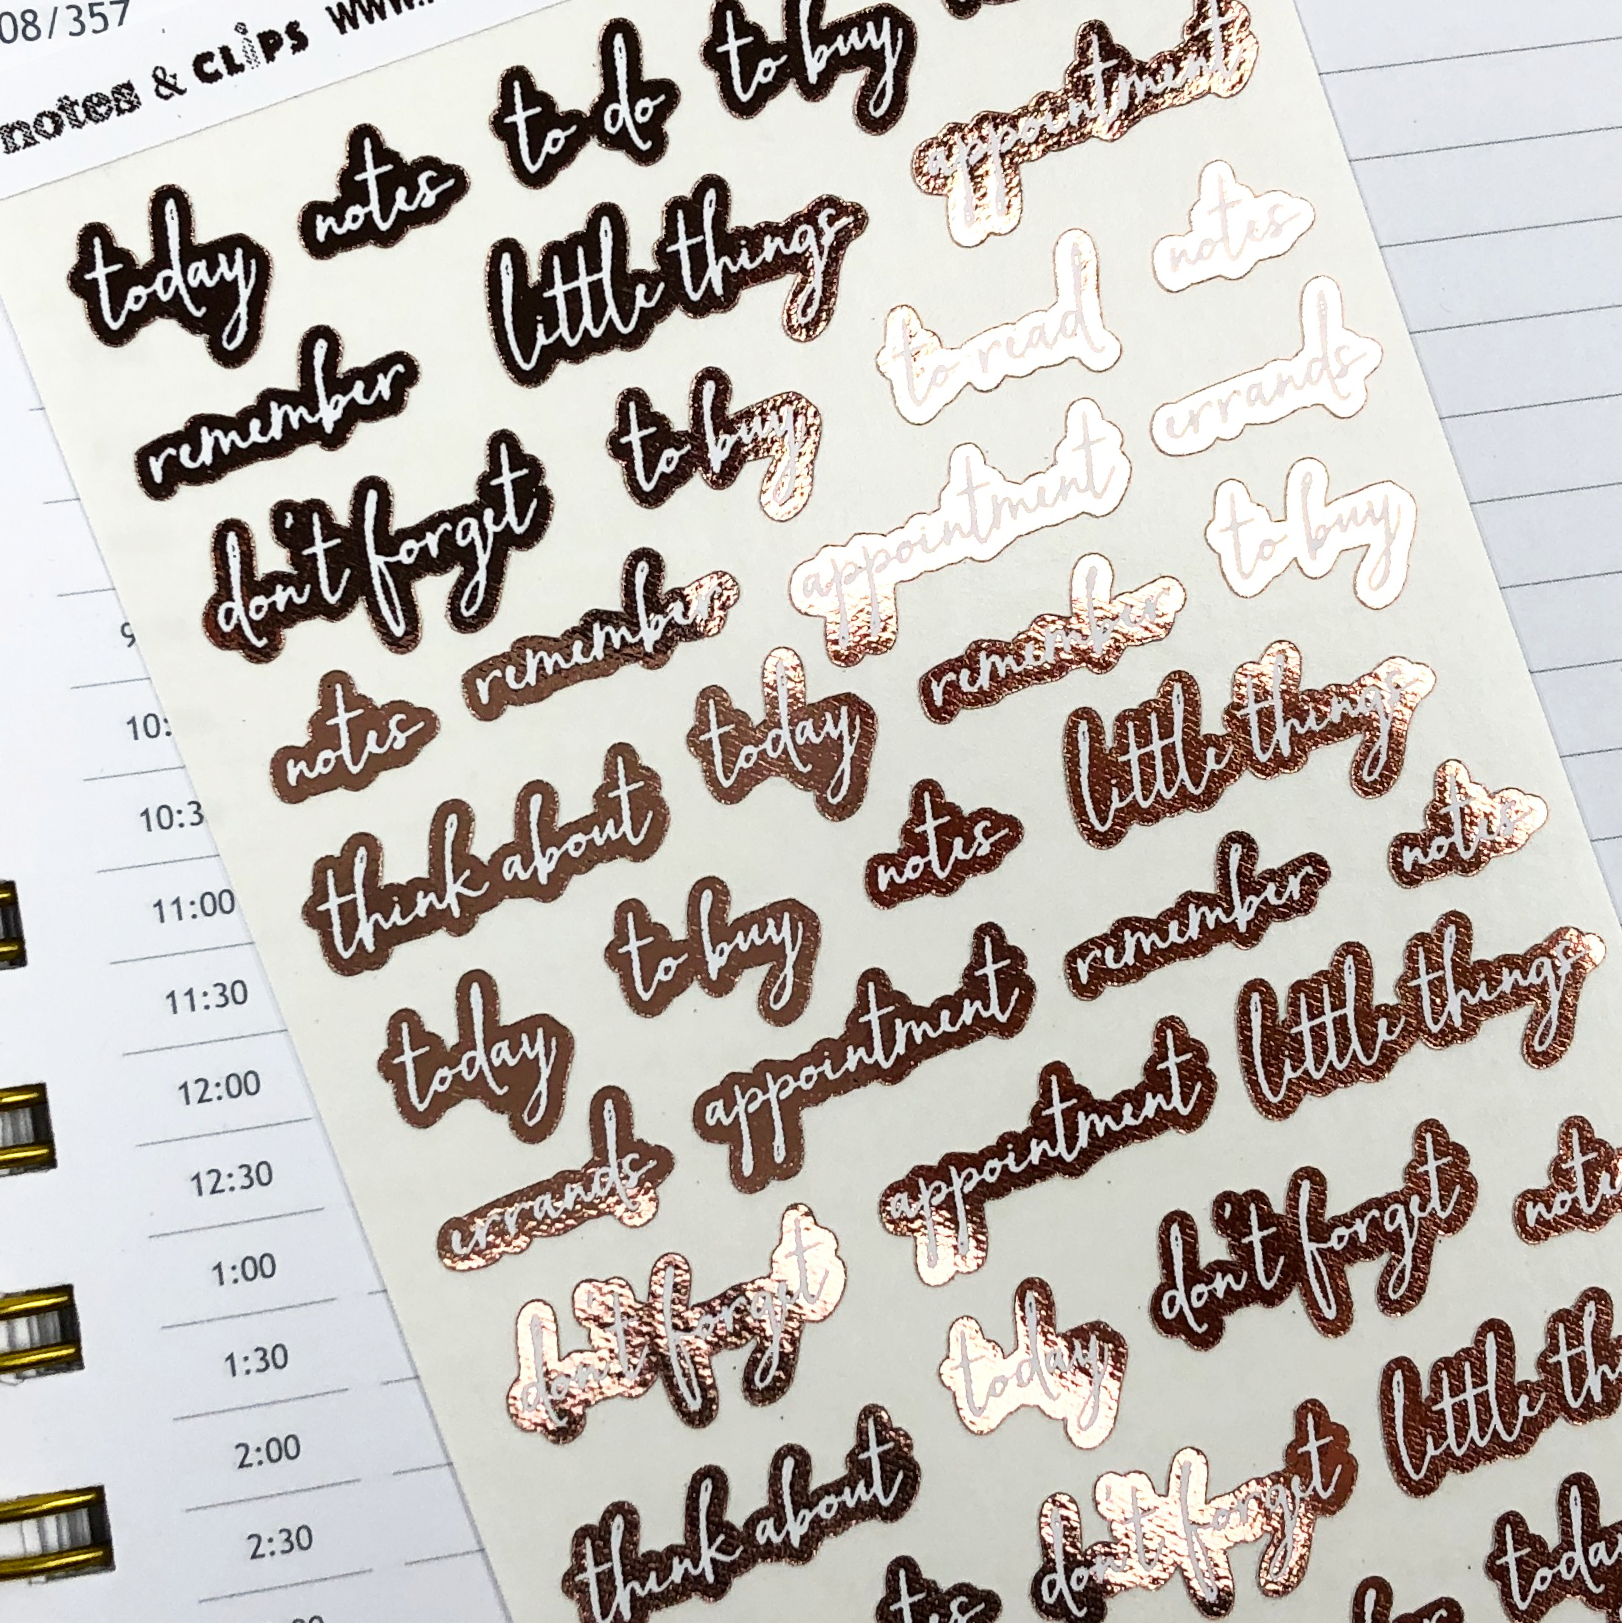 08/357
notes & CLiPS WWW.
today notes to do to buy
remember little things appointment
don't forget to buy to read notes
notes remember appointment errands
think about today remember to buy
today to buy notes little things
errands appointment remember notes
don't forget appointment little things
think about today don't forget notes
don't forget little
today
10:
10:3
11:00
11:30
12:00
12:30
1:00
1:30
2:00
2:30